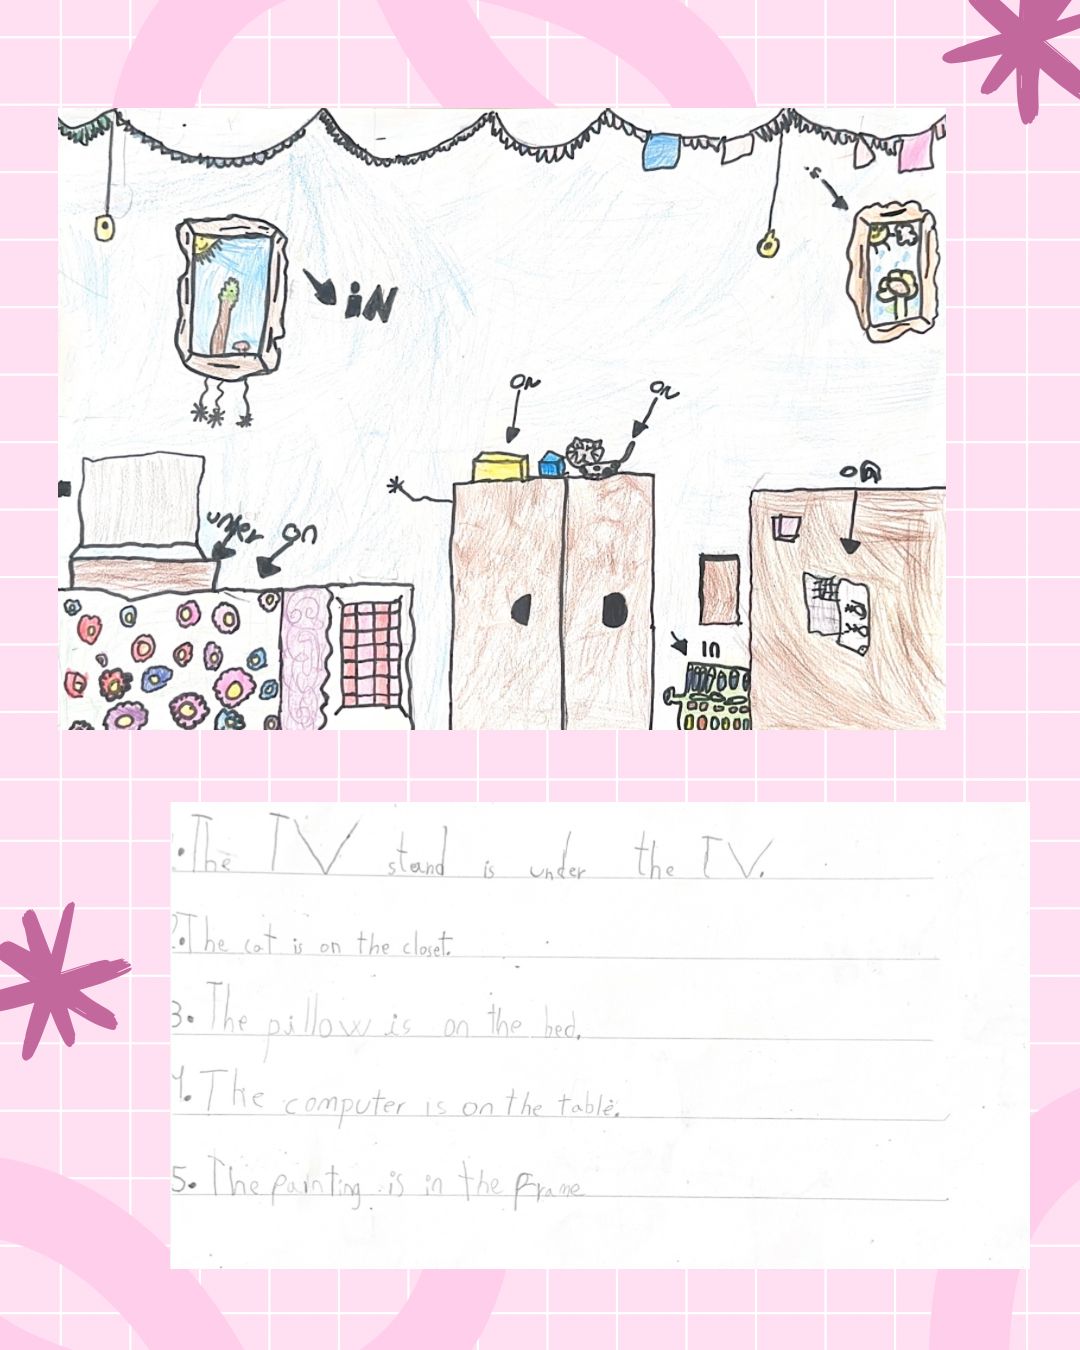 in
iN
on
on
on
under
on
in
1. The TV stand is under the TV.
2. The cat is on the closet.
3. The pillow is on the bed.
4. The computer is on the table.
5. The painting is in the Frame